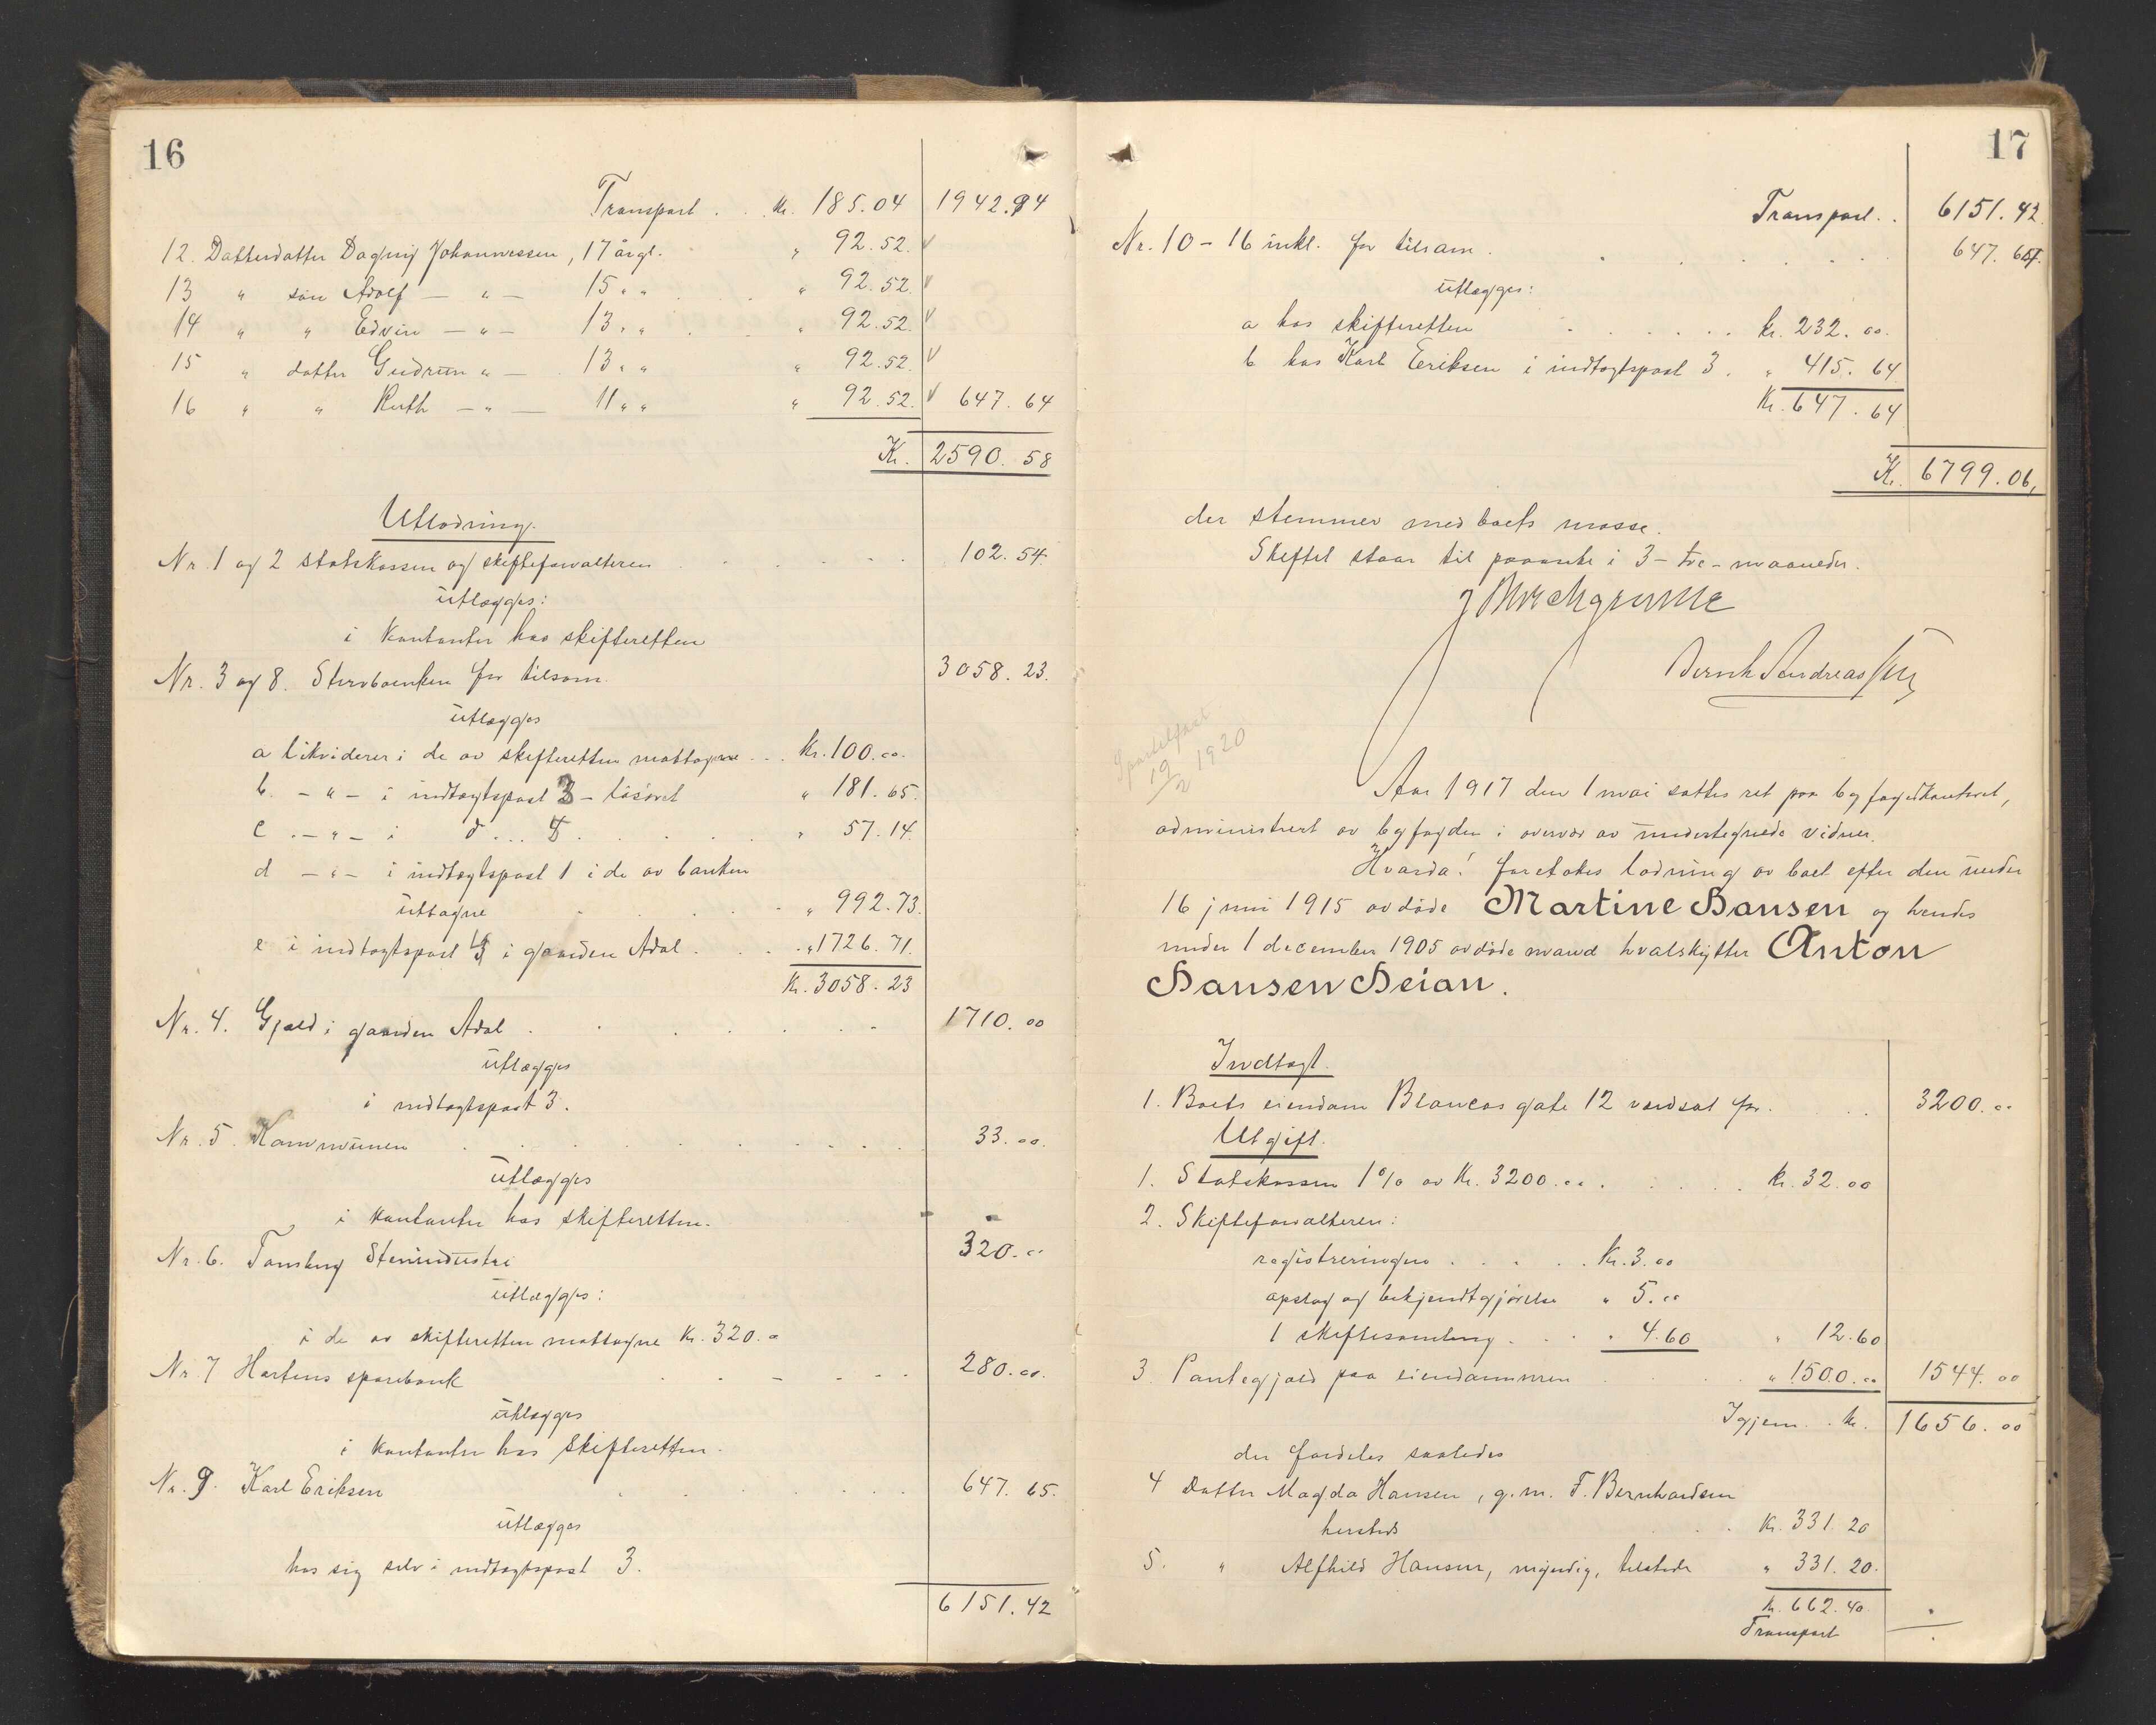 16
Transport . . Kr. 185.04 1942.94
12. Datterdatter Dagny Johannessen, 17 årgl. " 92.52. v
13 " søn Adolf — " — 15 " " " 92.52. v
14 " " Edvin — " — 13 " " " 92.52. v
15 " datter Gudrun " — 13 " " " 92.52. v
16 " " Ruth — " — 11 " " " 92.52. v 647.64
Kr. 2590.58
Utlodning.
Nr. 1 og 2 Statskassen og skifteforvalteren 102.54.
utlægges:
i kontanter hos skifteretten
Nr. 3 og 8. Stervboenken for tilsam. 3058.23.
utlægges
a likviderer i de av skifteretten mottagne ... Kr. 100.00.
b. — " — i indtægtspost 2 — løsøret " 181.65.
c. — " — i d ... 5 . " 57.14.
d — " — i indtægtspost 1 i de av banken
uttagne " 992.73.
e i indtægtspost 3 i gaarden Adal . . . " 1726.71.
Kr. 3058.23
Nr. 4. Gjæld i gaarden Adal 1710.00
utlægges
i indtægtspost 3.
Nr. 5. Kommunen 33.00.
utlægges
i kontanter hos skifteretten.
Nr. 6. Tønsberg Stenindustri 320.00
utlægges:
i de av skifteretten mottagne Kr. 320.00
Nr. 7 Hortens sparebank 280.00.
utlægges
i kontanter hos Skifteretten.
Nr. 9. Karl Eriksen 647.65.
utlægges
hos sig selv i indtægtspost 3.
6151.42
17
Transport . . 6151.42.
Nr. 10 – 16 inkl. for tilsam. 647.64.
utlægges:
a hos skifteretten kr. 232.00.
b hos Karl Eriksen i indtægtspost 3. " 415.64
Kr. 647.64
Kr. 6799.06,
der stemmer med boets masse.
Skiftet staar til paaanke i 3 – tre – maaneder.
Bernh Andreassen
19/2 1920
Aar 1917 den 1 mai sattes ret paa byfogedkontoret,
administrert av byfogden i overvær av undertegnede vidner.
Hvorda! foretokes lodning av boet efter den under
16 juni 1915 avdøde Martine Hansen og hendes
under 1 december 1905 avdøde mand hvalskytter Anton
Hansen Heian.
Indtægt.
1. Boets eiendom Blancas gate 12 verdsat for . . . 3200.00
Utgift.
1. Statskassen 1% av Kr. 3200.00 . . . . kr. 32.00
2. Skifteforvalteren:
registreringen . . . . Kr. 3.00
opslag og bekjendtgjørelse " 5.00
1 skiftesamling . . . " 4.60 " 12.60
3. Pantegjæld paa eiendommen " 1500.00 1544.00
Igjen . . kr. 1656.00
der fordeles saaledes
4 Datter Magda Hansen, g.m. F. Bernhardsen
hersteds . . Kr. 331.20
5. " Alfhild Hansen, myndig, tilstede " 331.20.
Kr. 662.40.
Transport